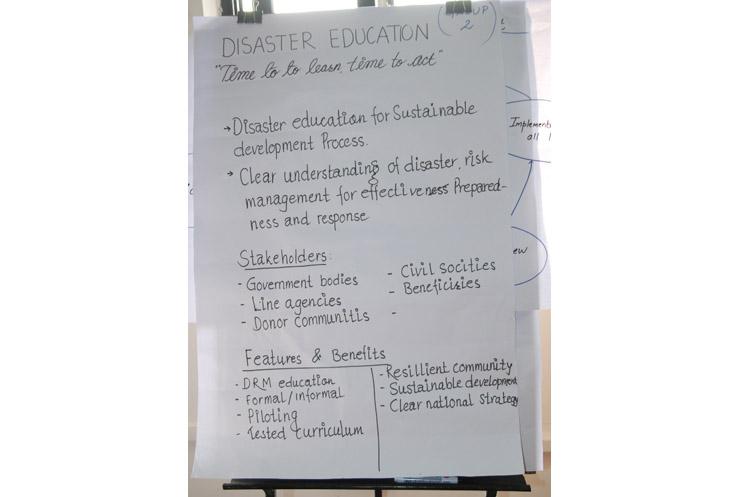 GROUP
2
DISASTER EDUCATION
"Time to to learn, time to act"
→Disaster education for Sustainable
development Process.
→ Clear understanding of disaster, risk
management for effectiveness Prepared-
ness and response
Stakeholders:
- Government bodies
- Line agencies
- Donor Communitis
- Civil Socities
- Beneficisies
-
Features & Benefits
- DRM education
- Formal/informal
- Piloting
- Tested curriculum
- Resillient community
- Sustainable development
- Clear national Strategy
Implement
all
ew